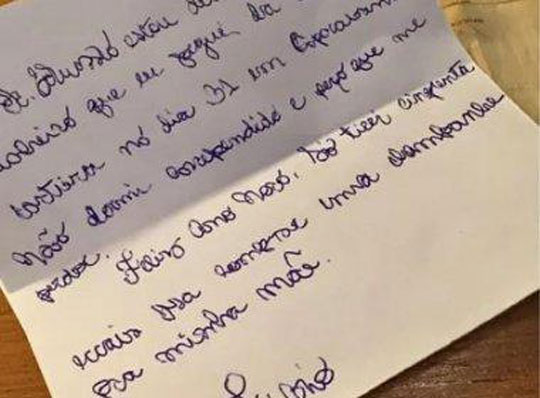 Sr. Eduardo estou
dinheiro que eu peguei da
carteira no dia 31 em Copacabana
Não dormi arrependido e peço que me
perdoe. Feliz Ano Novo. Só tirei cinquenta
reais pra comprar uma
pra minha mãe.